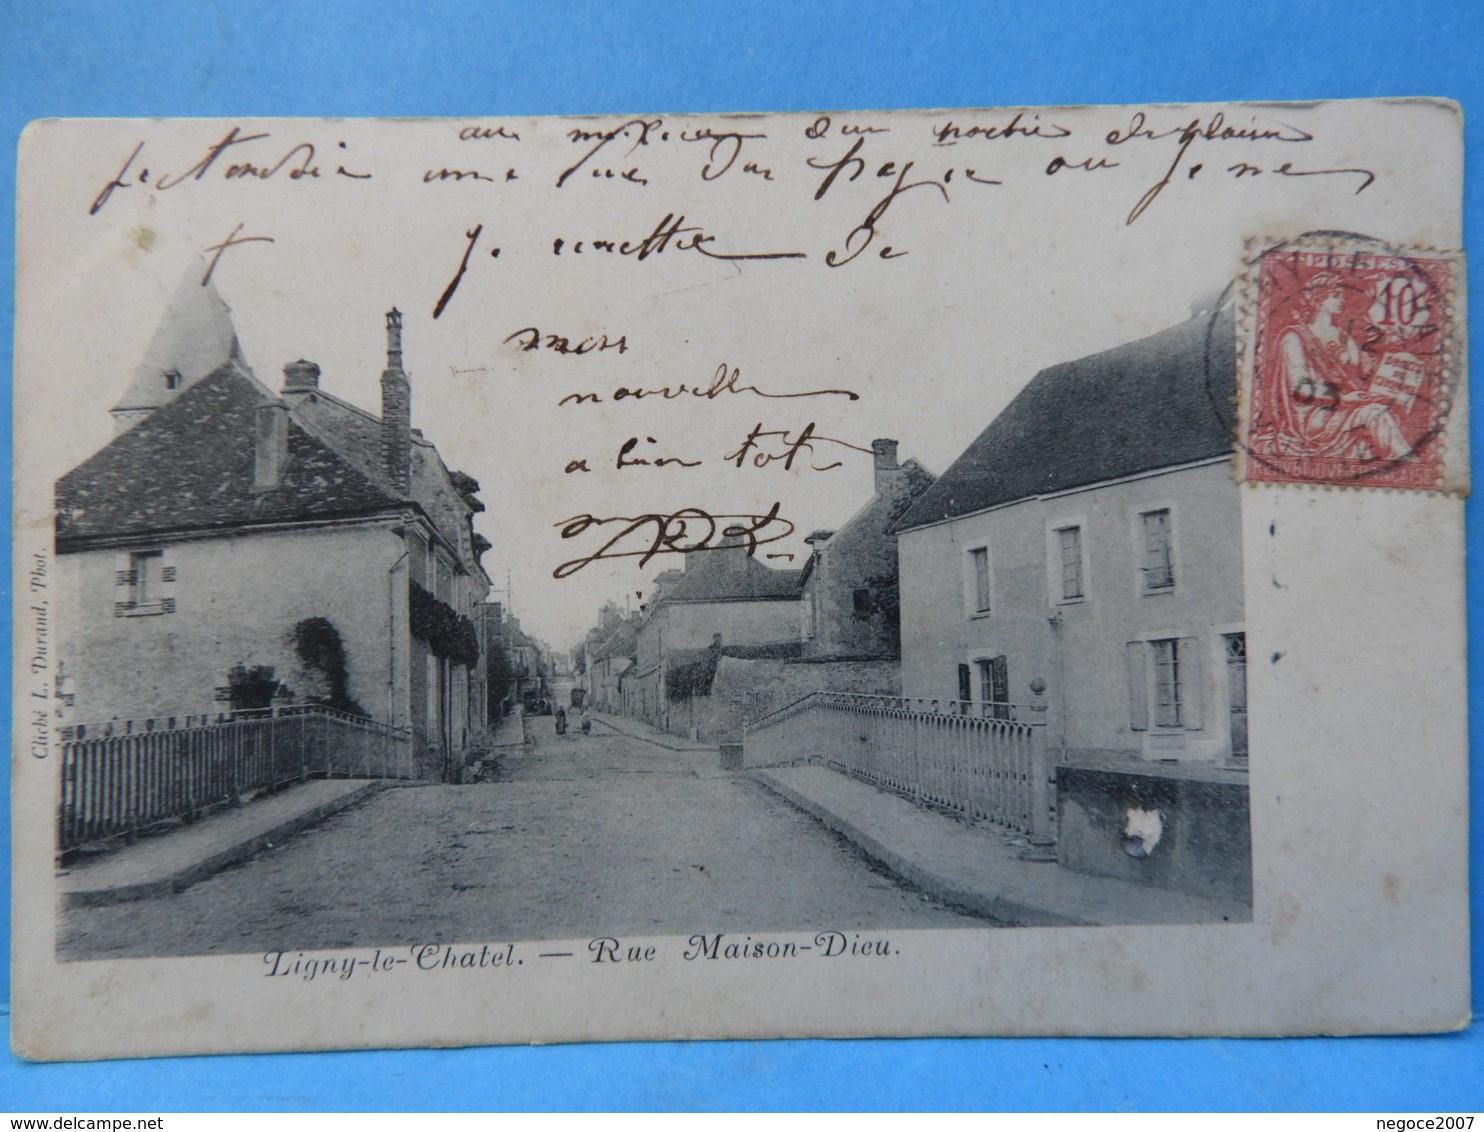 au milieu d'un partie de plaisir
Je une vue du pays ou je me
+ Je remettre de
mes
nouvelle
a bien tot
POSTES
10
DROITS DE L'HOMME
REPUBLIQUE FRANCAISE
03
Cliché L. Durand, Phot.
Ligny-le-Chatel. — Rue Maison-Dieu.
delcampe.net
negoce2007